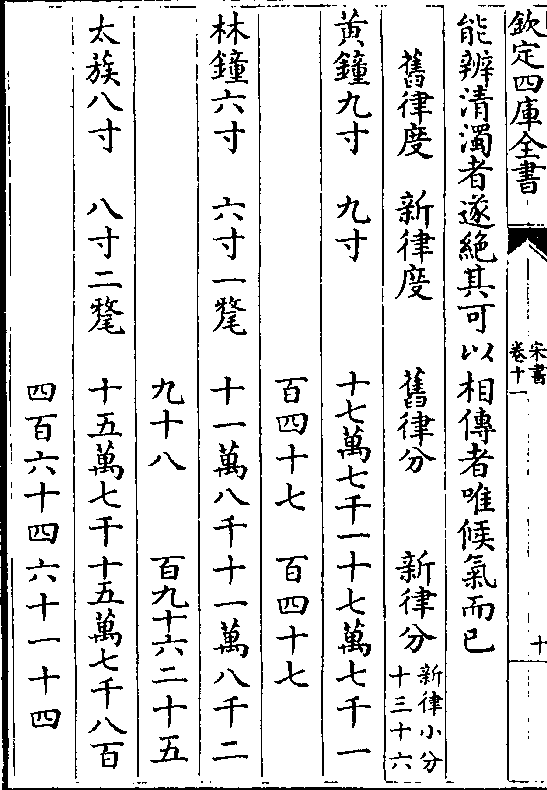 欽定四庫全書
宋書
卷十一
十
能辨清濁者遂絶其可以相傳者唯候氣而已
舊律度 新律度 舊律分 新律分 新律小分
十三十六
黃鐘九寸 九寸 十七萬七千一十七萬七千一
百四十七 百四十七
林鐘六寸 六寸一氂 十一萬八千十一萬八千二
九十八 百九十六二十五
太簇八寸 八寸二氂 十五萬七千十五萬七千八百
四百六十四六十一十四